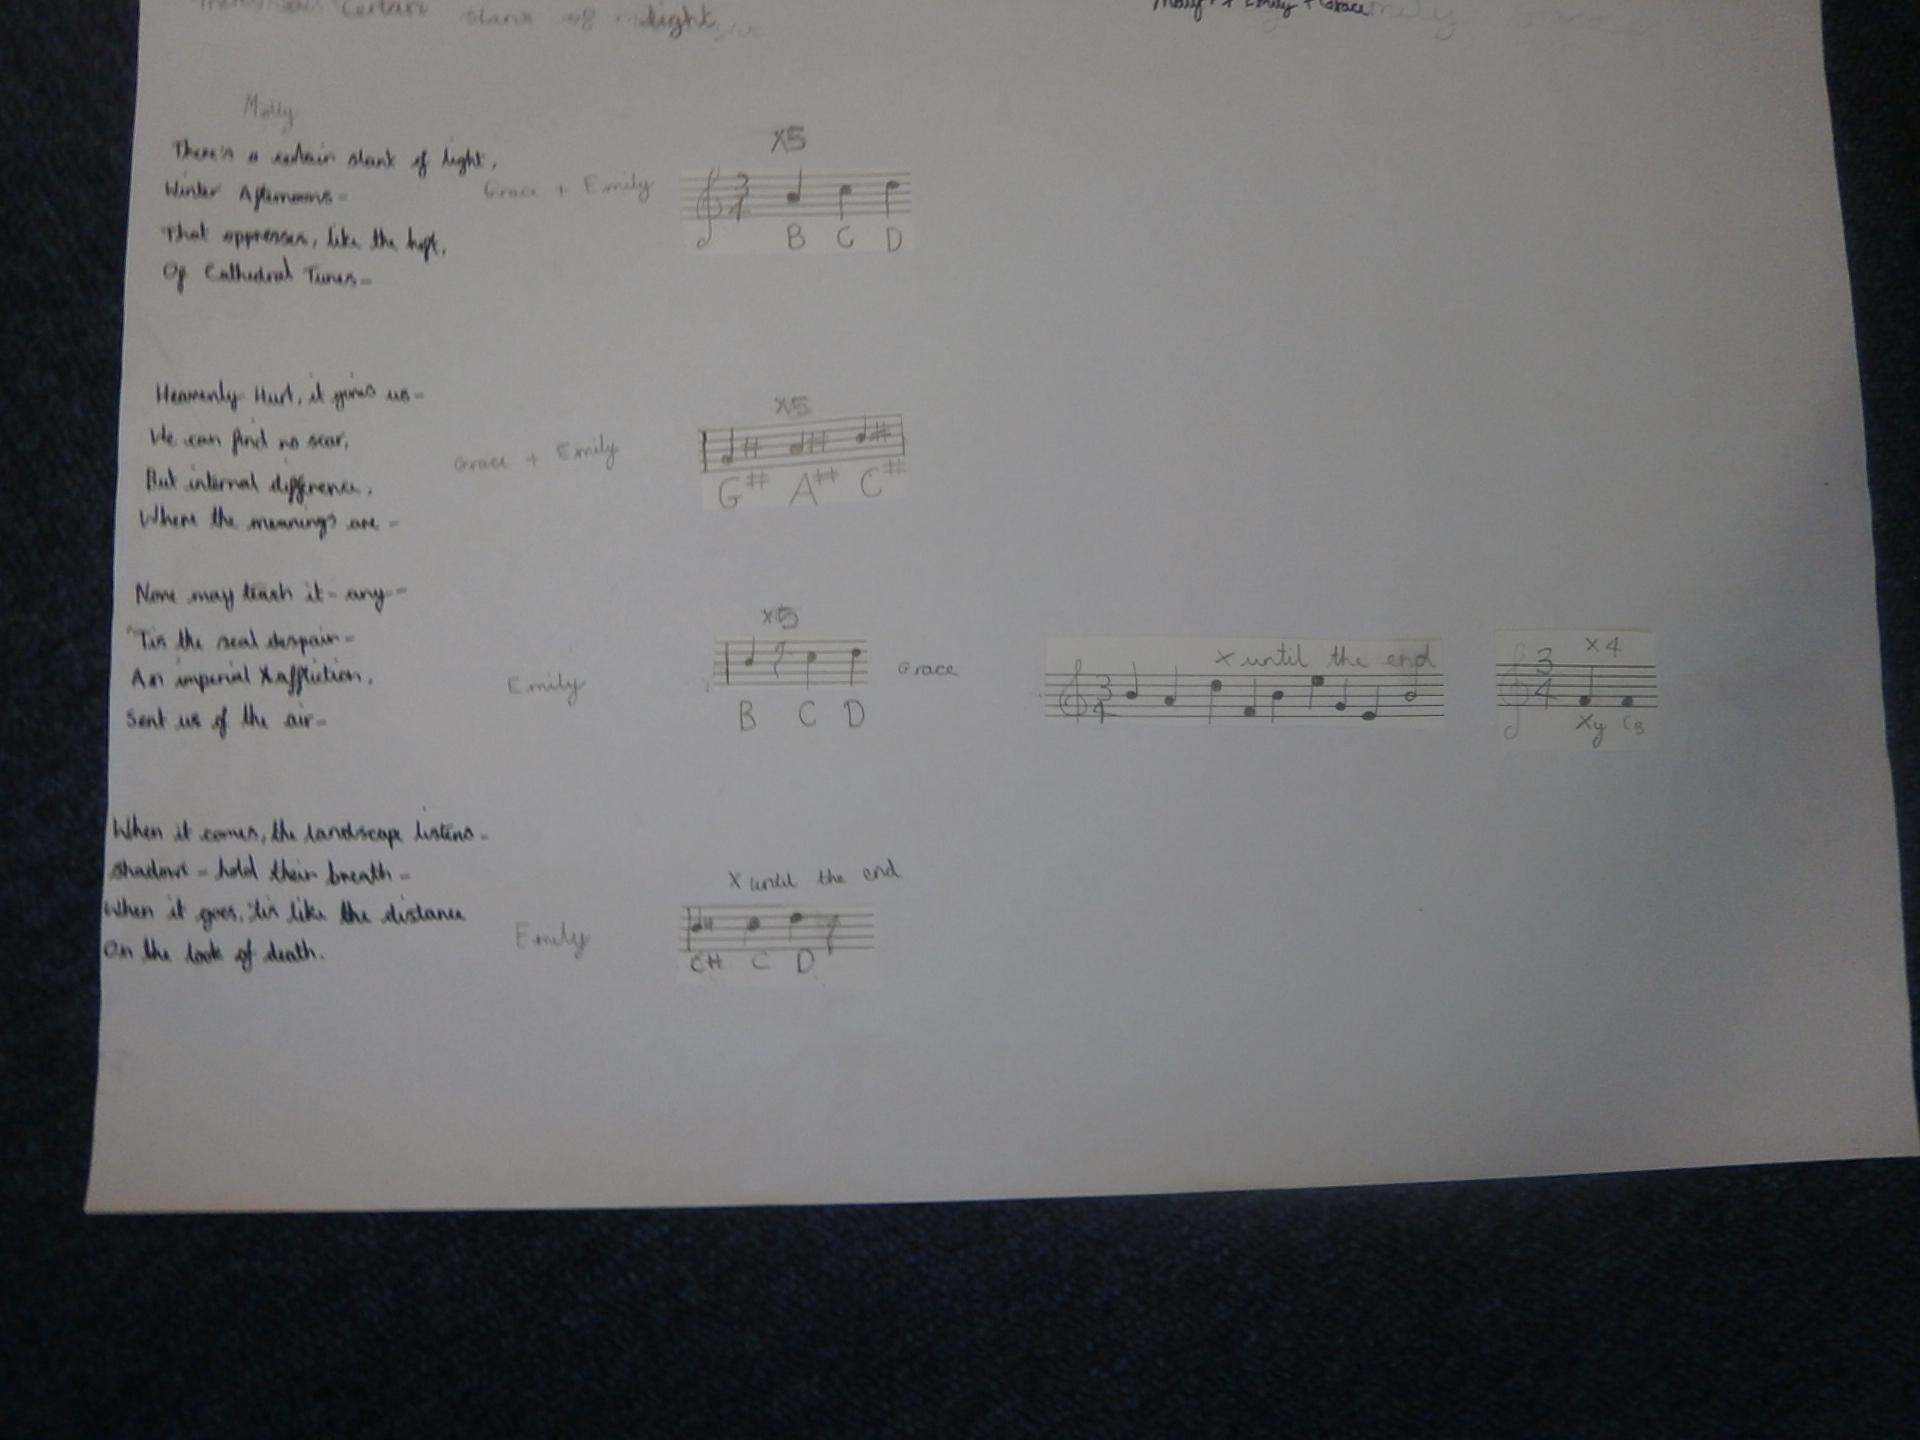 Certain slant of light
Molly + Emily + Grace
Molly
There's a certain slant of light,
Winter Afternoons-
That oppresses, like the heft,
Of Cathedral Tunes-
Grace + Emily
X5
3
4
B C D
Heavenly Hurt, it gives us-
We can find no scar,
But internal difference,
Where the meanings are-
Grace + Emily
X5
G# A# C#
None may teach it- any-
'Tis the seal despair-
An imperial affliction,
Sent us of the air-
Emily
X5
B C D
Grace
X until the end
3
4
X4
3
4
When it comes, the landscape listens-
Shadows- hold their breath-
When it goes, 'tis like the distance
On the look of death.
Emily
X until the end
C# C D